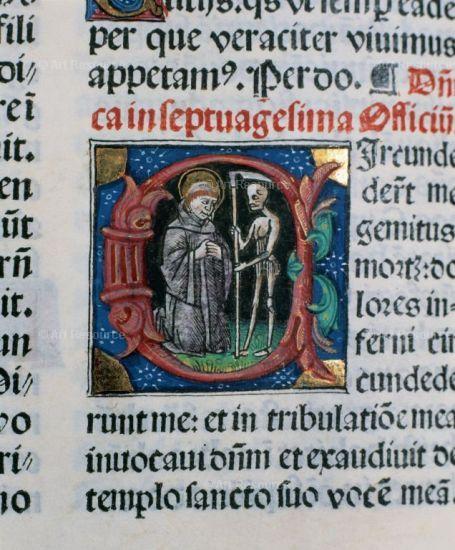 fili
di⸗
reī
it.
en
ūt
rñ
it.
un
Di⸗
vo
ri⸗
no
qs vt semp eade
per que veraciter viuimus
appetamꝰ. Perdo. ¶ Dñi
ca in septuagesima Officiū
Circunde
der̄t me
gemitus
mortꝫ: do
lores in⸗
ferni cir
cundede
runt me: et in tribulatiōe mea
inuocaui dñm et exaudiuit de
templo sancto suo vocē meā.
© Art Resource